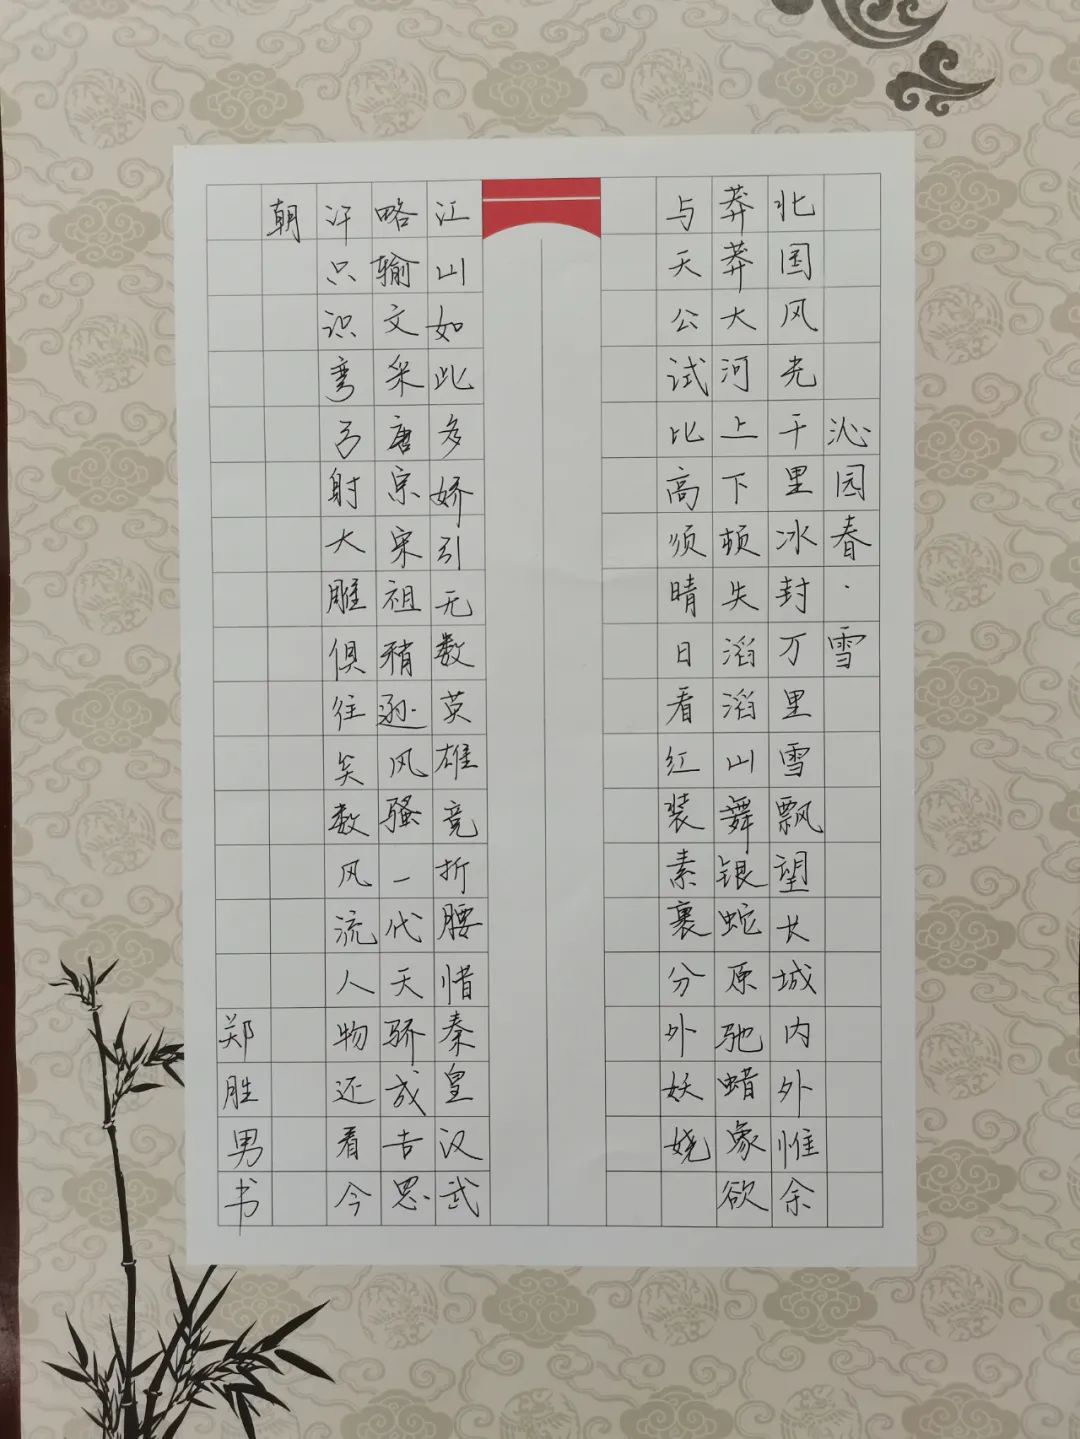 沁园春·雪
北国风光千里冰封万里雪飘望长城内外惟余
莽莽大河上下顿失滔滔山舞银蛇原驰蜡象欲
与天公试比高须晴日看红装素裹分外妖娆
江山如此多娇引无数英雄竞折腰惜秦皇汉武
略输文采唐宗宋祖稍逊风骚一代天骄成吉思
汗只识弯弓射大雕俱往矣数风流人物还看今
朝
郑胜男书